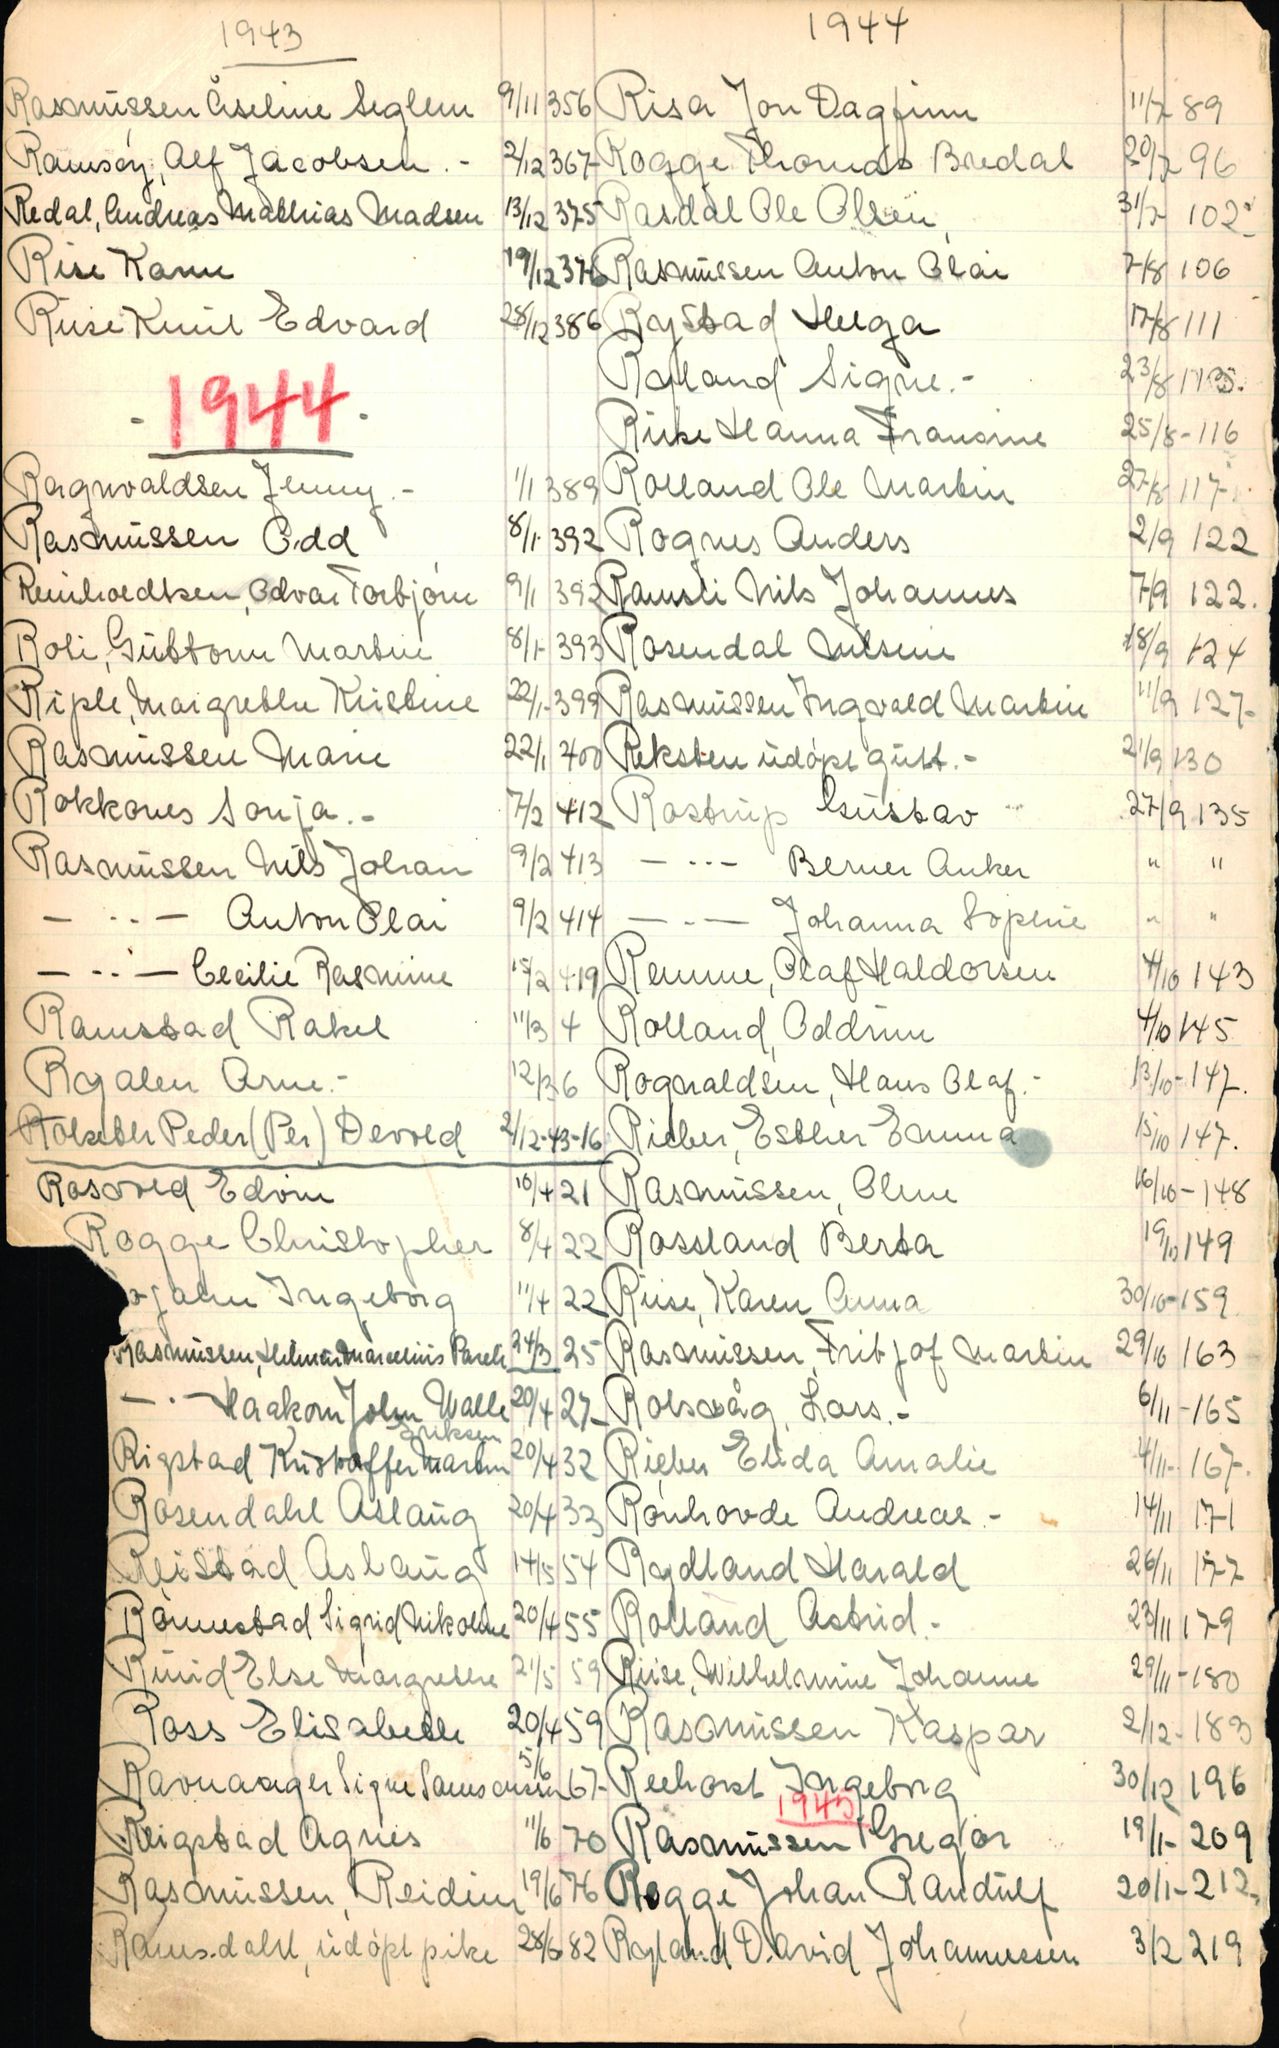 1943
Rasmussen Åseline Seglem 9/11 356
Ramsøy, Alf Jacobsen. - 2/12 367
Redal, Andreas Mathias Madsen 13/12 375
Rise Kanu 19/12 376
Riise Knut Edvard 28/12 386
- 1944 -
Ragnvaldsen Jenny. - 1/1 389
Rasmussen Odd 8/1 392
Reinholdtsen, Odvar Torbjørn 9/1 392
Roli, Guttorm Martin 8/1 393
Riple, Margrethe Kristine 22/1 399
Rasmussen Marie 22/1 400
Rokkones Sonja. - 7/2 412
Rasmussen Nils Johan 9/2 413
— ·· — Anton Olai 9/2 414
— ·· — Cecilie Rasmine 15/2 419
Ramstad Rakel 11/3 4
Rydlen Arne. - 12/3 6
Rolseth Peder (Per) Devold 2/12-43-16
Rosvold Edvin 10/4 21
Rogge Christopher 8/4 22
Ingeborg 11/4 22
Rasmussen, Hilmar Marcelius 24/3 25
— · — Haakon John Walle 20/4 27
Eriksen
Rigstad Kristoffer Martin 20/4 32
Rosendahl Aslaug 20/4 33
Reistad Aslaug 14/5 54
Rønnestad Sigrid Nikoline 20/4 55
Ruud Else Margrethe 21/5 59
Ross Elisabeth 20/4 59
Ravnanger Signe Samsonsen 5/6 67
Reigstad Agnes 11/6 70
Rasmussen, Reidun 19/6 76
Ramsdahl, udøpt pike 28/6 82
1944
Risa Jon Dagfinn 11/7 89
Rogge Thomas Bredal 20/7 96
Rasdal Ole Olsen, 31/7 102
Rasmussen Anton Olai 7/8 106
Rystad Helga 17/8 111
Rylland Signe. - 23/8 115.
Riise Hanna Fransine 25/8 - 116
Rolland Ole Martin 27/8 117
Rognes Anders 2/9 122
Ramsli Nils Johannes 7/9 122.
Rosendal Nilsine 18/9 124
Rasmussen Ingvald Martin 11/9 127
Reksten udøpt gutt. - 21/9 130
Rostrup Gustav 27/9 135
— ·· — Berner Anker " "
— ·· — Johanna Sophie " "
Remme, Olaf Haldorsen 4/10 143
Rolland, Oddrun 4/10 145
Rognaldsen, Hans Olaf. - 13/10 - 147.
Rieber, Esther Emma 15/10 147.
Rasmussen, Oline 16/10 - 148
Rossland Berta 19/10 149
Riise, Karen Anna 30/10 - 159
Rasmussen, Fritjof Martin 29/10 163
Rolsvåg, Lars. - 6/11 - 165
Rieber Elida Amalie 4/11 - 167.
Rønhovde Andreas - 14/11 171
Rydland Harald 26/11 177
Rolland Astrid. - 23/11 179
Riise, Wilhelmine Johanne 29/11 - 180
Rasmussen Kaspar 2/12 - 183
Reehorst Ingeborg 30/12 196
1945
Rasmussen Gregor 19/1 - 209
Rogge Johan Randulf 20/1 - 212
Ryland David Johannessen 3/2 219